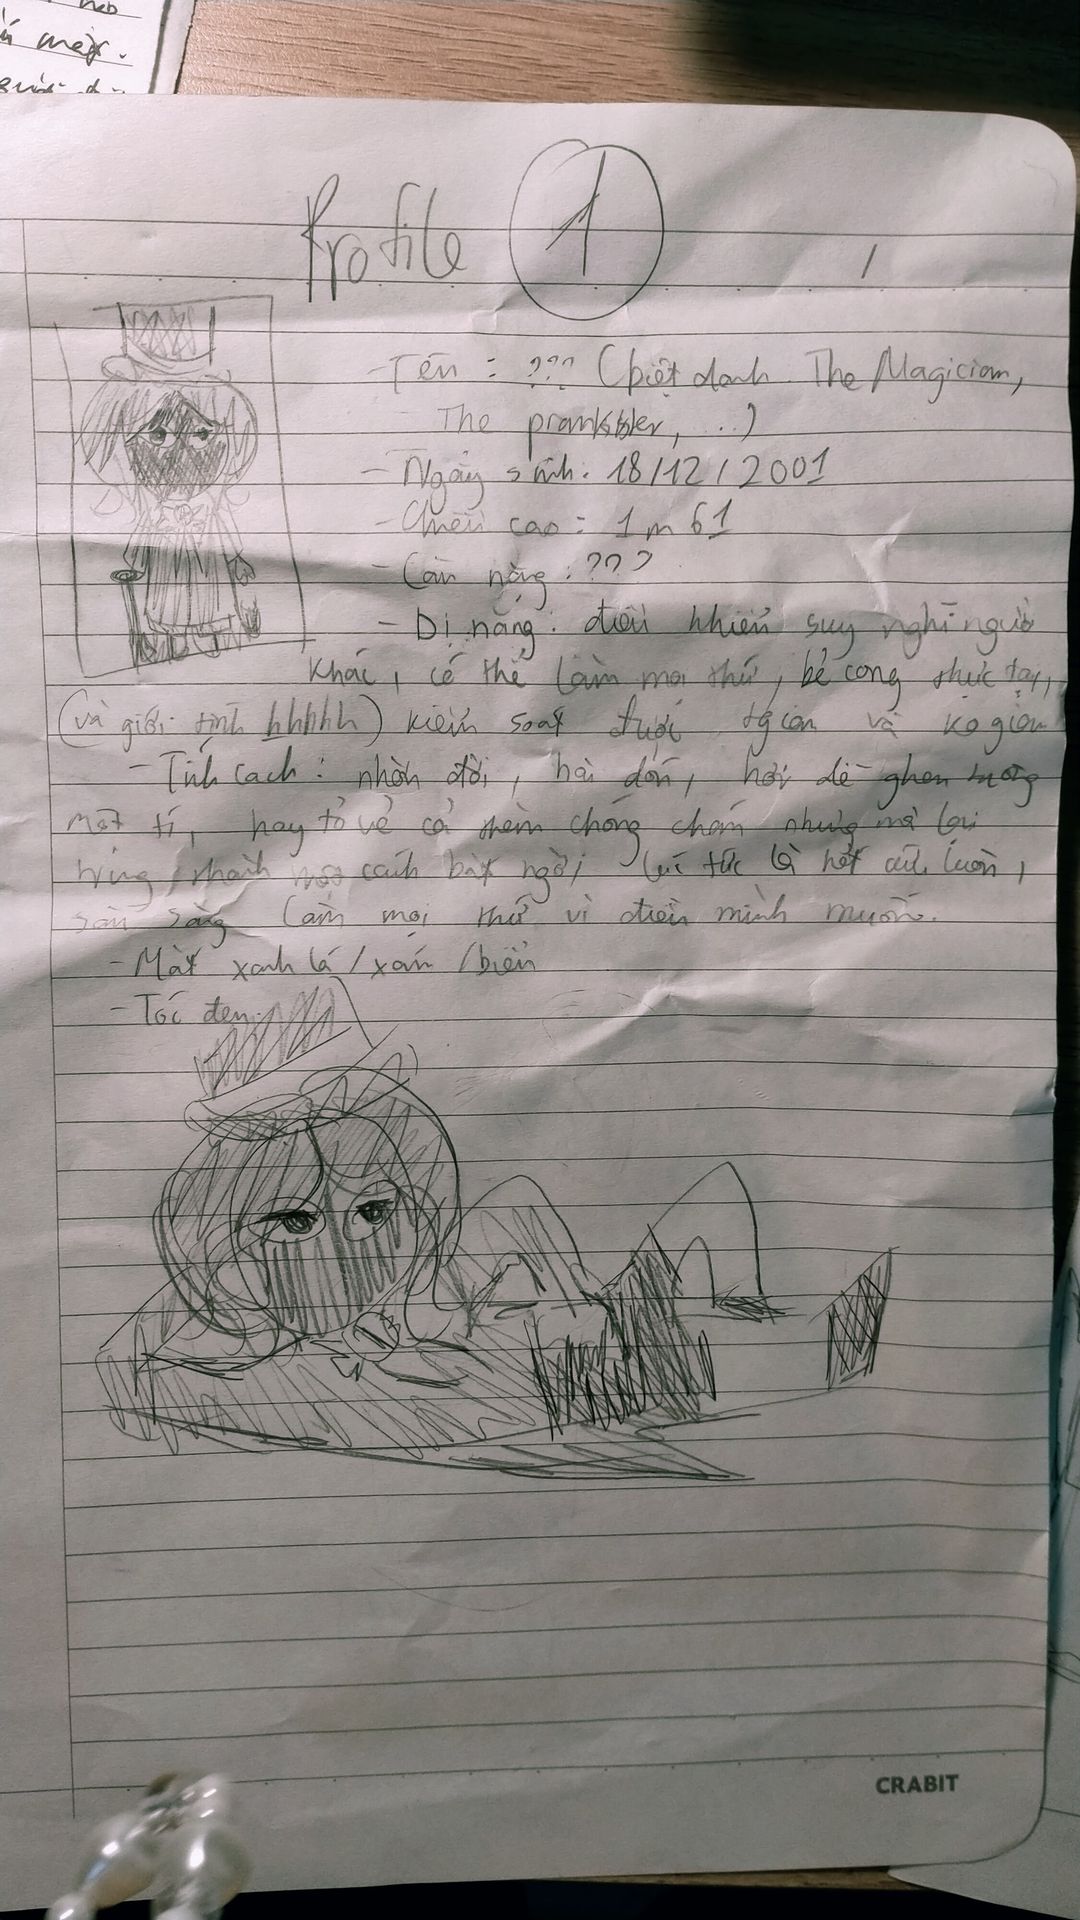 mặt.
Profile 1
- Tên : ??? (biệt danh. The Magician,
The prankster, ..)
- Ngày sinh: 18/12/2001
- Chiều cao : 1m61
- Cân nặng : ???
- Dị năng: điều khiển suy nghĩ người
khác, có thể làm mọi thứ, bẻ cong thực tại,
(và giới tính hhhhh) kiểm soát được tgian và ko gian
- Tính cách : nhờn đời, hài dón, hơi dễ ghen tuông
một tí, hay tỏ vẻ cả thèm chóng chán nhưng mà lại
một cách bất ngờ, tức là hết cứu luôn,
sẵn sàng làm mọi thứ vì điều mình muốn.
- Mắt xanh lá/xám/biển
- Tóc đen.
CRABIT